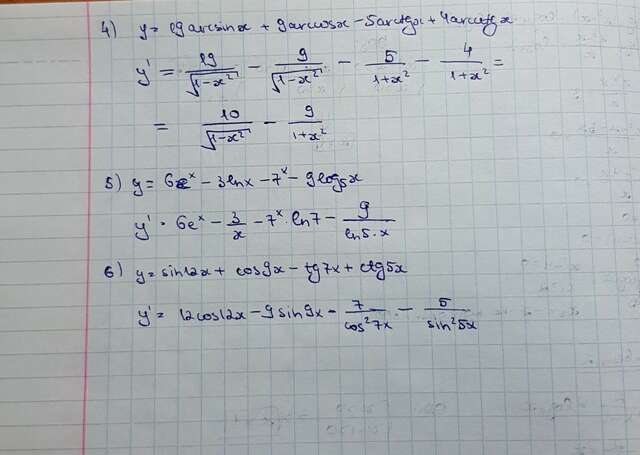 4) y = 19 arcsin x + 9 arccos x - 5 arctg x + 4 arcctg x
y' = 19/√(1-x²) - 9/√(1-x²) - 5/(1+x²) - 4/(1+x²) =
= 10/√(1-x²) - 9/(1+x²)
5) y = 6e^x - 3 ln x - 7^x - 9 log₅ x
y' = 6e^x - 3/x - 7^x · ln 7 - 9/(ln 5 · x)
6) y = sin 12x + cos 9x - tg 7x + ctg 5x
y' = 12 cos 12x - 9 sin 9x - 7/(cos² 7x) - 5/(sin² 5x)